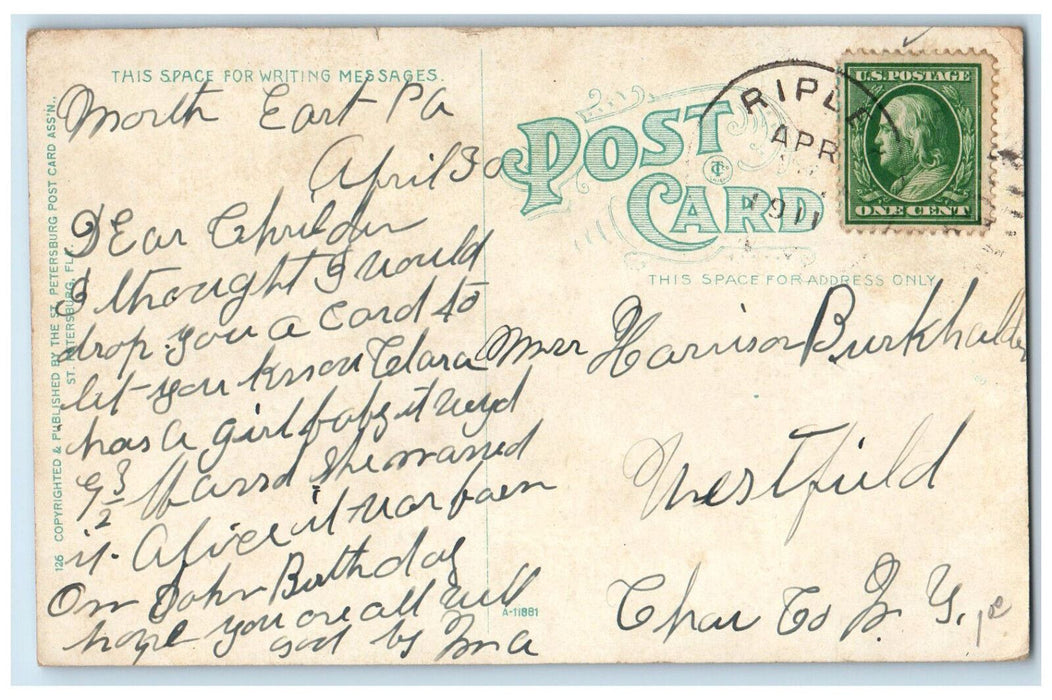 THIS SPACE FOR WRITING MESSAGES.
North East Pa
April 30
Dear Children
I thought I would
drop you a card to
let you know Clara
has a girl baby it weyd
9 3/2 and she named
it Alice it was born
On John Birthday
hope you are all well
good by Ma
126 COPYRIGHTED & PUBLISHED BY THE ST. PETERSBURG POST CARD ASS'N.,
ST. PETERSBURG, FLA.
POST CARD
RIPLE
APR
1911
U.S. POSTAGE
ONE CENT
THIS SPACE FOR ADDRESS ONLY
Mrs Harrison Burkhalder
Westfield
Chau Co N. Y.
A-11881